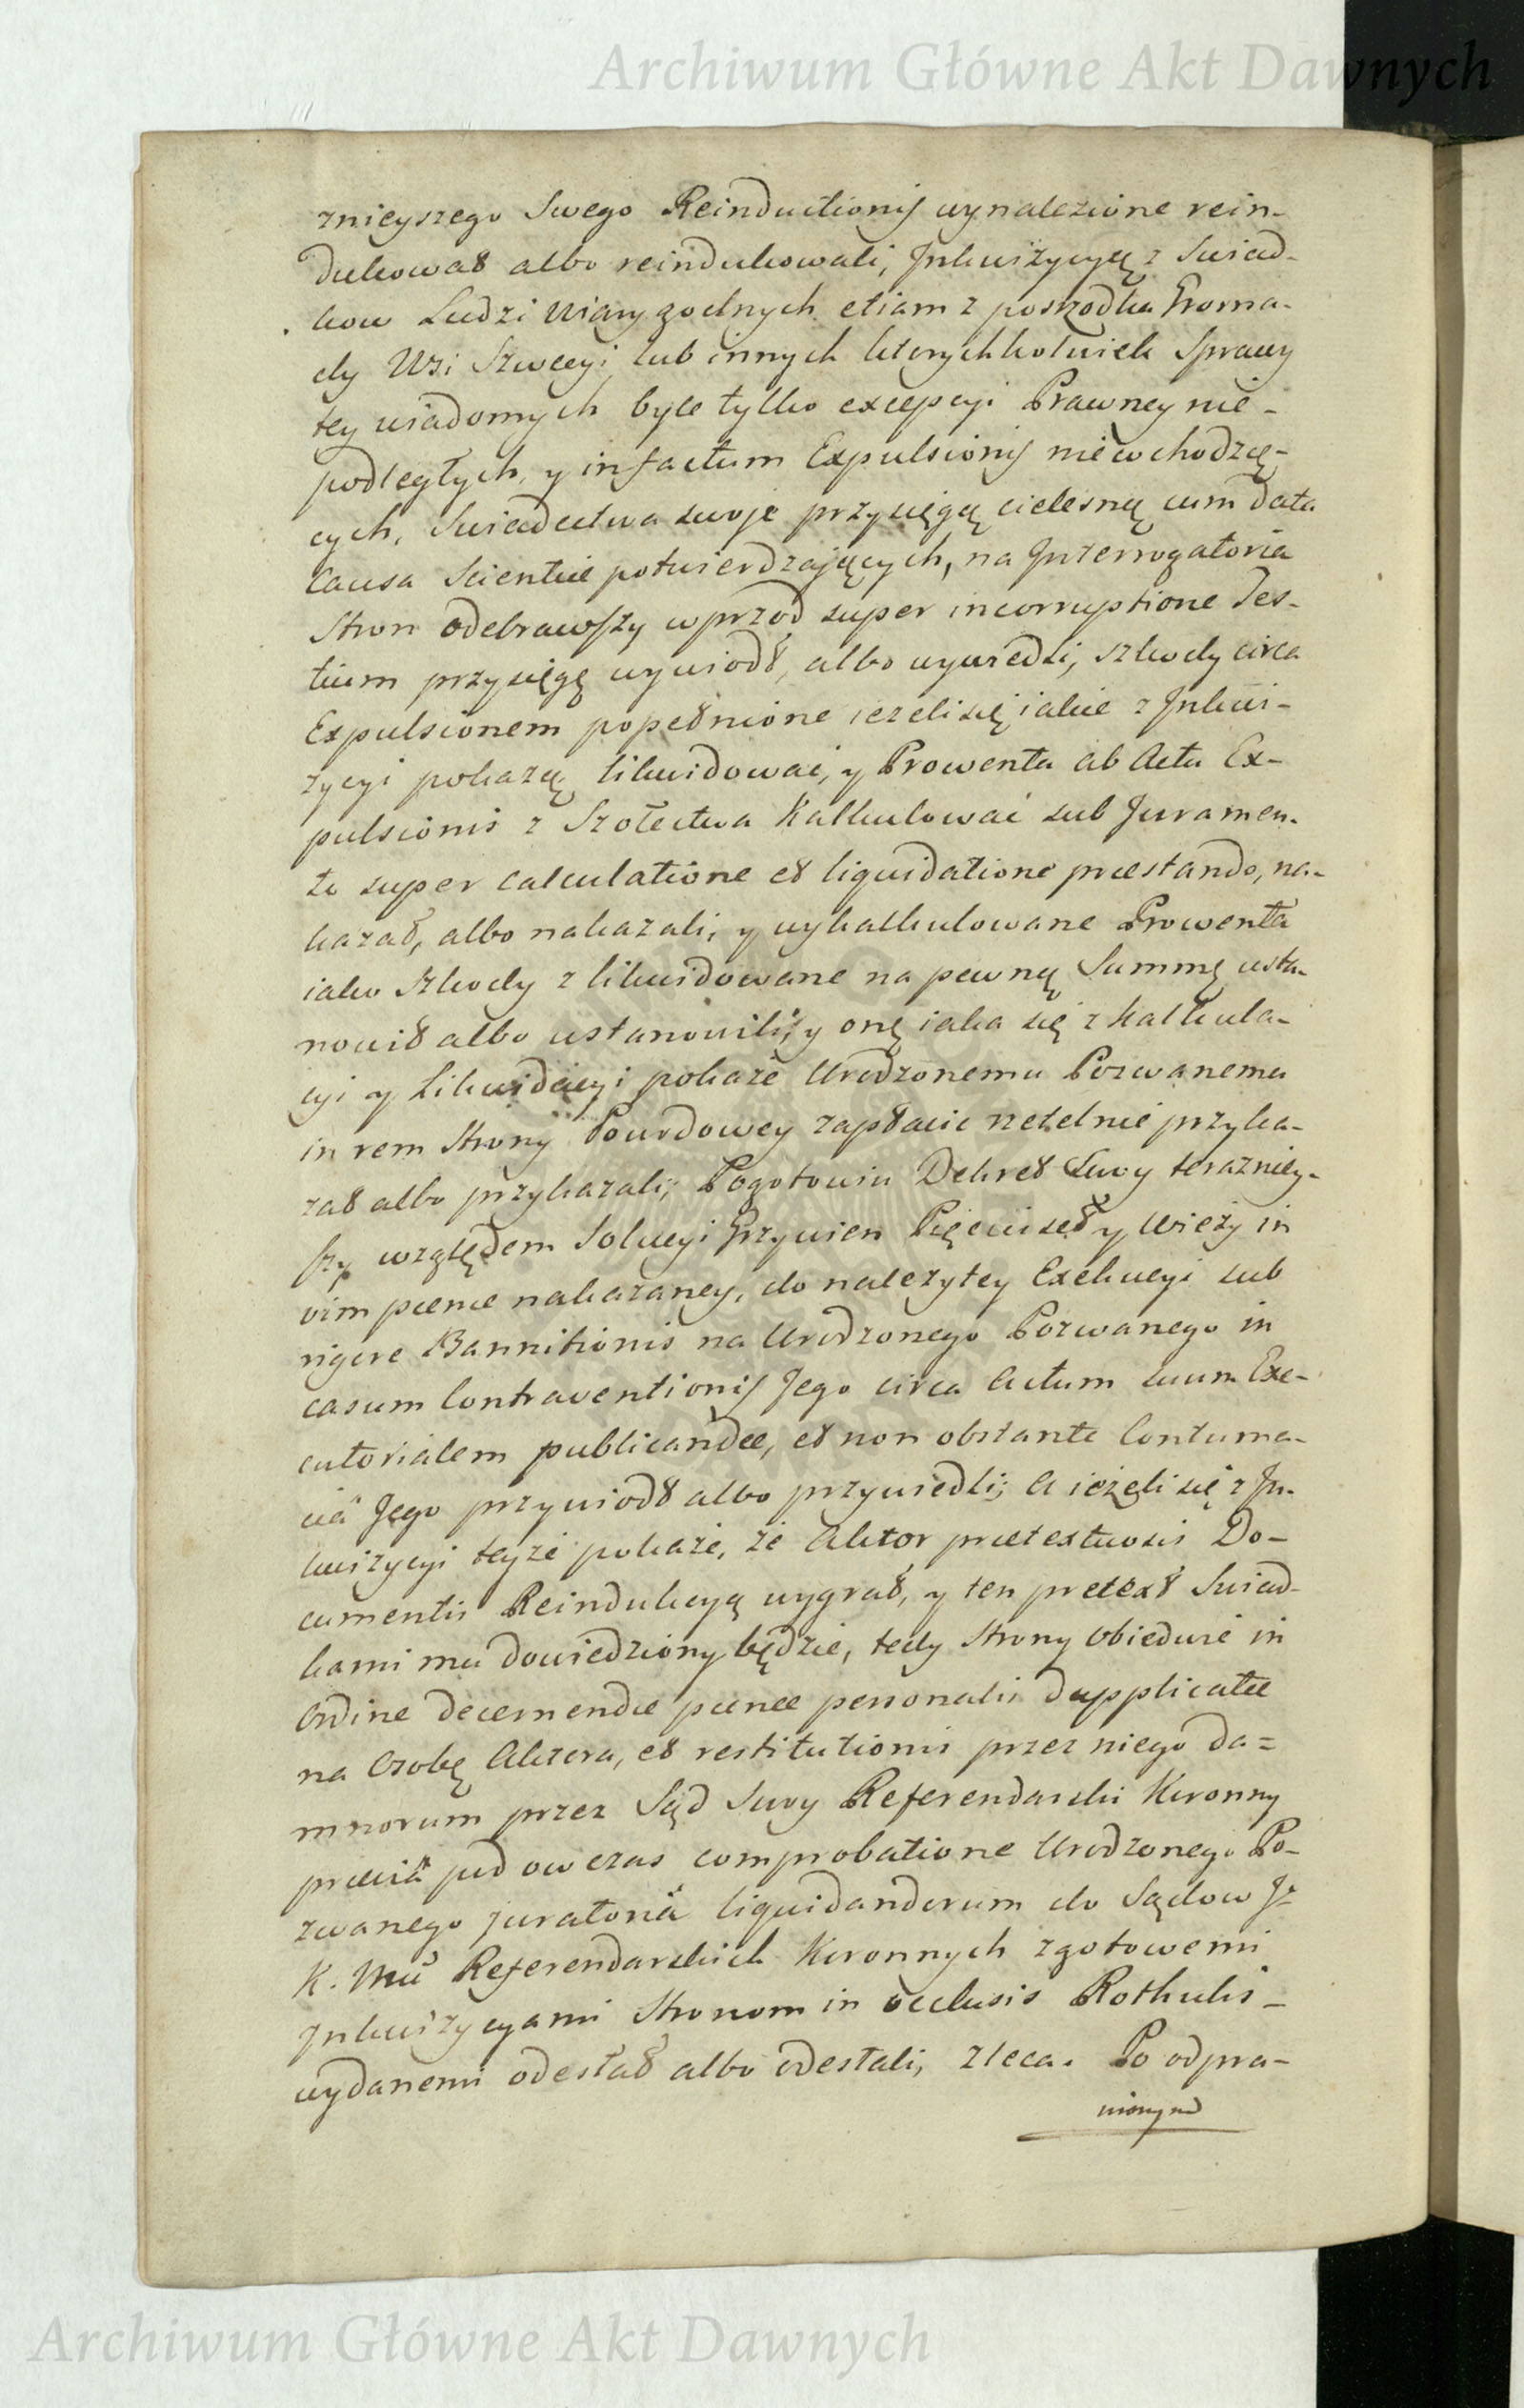 Archiwum Główne Akt Dawnych
znieyszego Swego Reinductionis wynalezione rein-
dukował albo reindukowali, Inkwizycyą z Swiad-
kow Ludzi Wiary godnych etiam z poszrodka Groma-
dy Wsi Szwecyi lub innych ktorychkolwiek Sprawy
tey wiadomych byle tylko excepcyi Prawney nie-
podległych, y in factum Expulsionis niewchodzą-
cych, Swiadectwa swoje przysięgą cielesną cum data
Causa Scientiæ potwierdzających, na Interrogatoria
Stron odebrawszy wprzod super incorruptione Tes-
tium przysięgę wywiodł, albo wywiedli, szkody circa
Expulsionem popełnione iezeli się iakie z Inkwi-
zycyi pokazą likwidować, y Prowenta ab Actu Ex-
pulsionis z Szołectwa Kalkulować sub Juramen-
to super calculatione et liquidatione præstando, na-
kazał, albo nakazali, y wykalkulowane Prowenta
iako Szkody zlikwidowane na pewną Summę usta-
nowił albo ustanowili, y onę iaka się z Kalkula-
cyi y Likwidacyi pokaże Urodzonemu Pozwanemu
in rem Strony Powodowey zapłacić rzetelnie przyka-
zał albo przykazali; Pogotowiu Dekret Swoy teraźniey-
szy względem Solucyi Grzywien Pięciuset y Wieży in
vim pœnæ nakazaney, do nalezytey Exekucyi sub
rigore Bannitionis na Urodzonego Pozwanego in
casum Contraventionis Jego circa Actum suum Exe-
cutorialem publicandæ, et non obstante Contuma-
cia Jego przywiodł albo przywiedli; A ieżeli się z In-
kwizycyi teyże pokaże, że Aktor prætextuosis Do-
cumentis Reindukcyą wygrał, y ten pretext Swiad-
kami mu dowiedziony będzie, tedy Strony Obiedwie in
Ordine decernendæ pœnæ personalis dupplicatæ
na Osobę Aktora, et restitutionis przez niego da-
mnorum przez Sąd Swoy Referendarski Koronny
prævia pod owczas comprobatione Urodzonego Po-
zwanego juratoria liquidandorum do Sądow J.
K. Mci Referendarskich Koronnych zgotowemi
Inkwizycyami Stronom in occlusis Rothulis
wydanemi odesłał albo odesłali, zleca. Po odpra-
wionym
Archiwum Główne Akt Dawnych